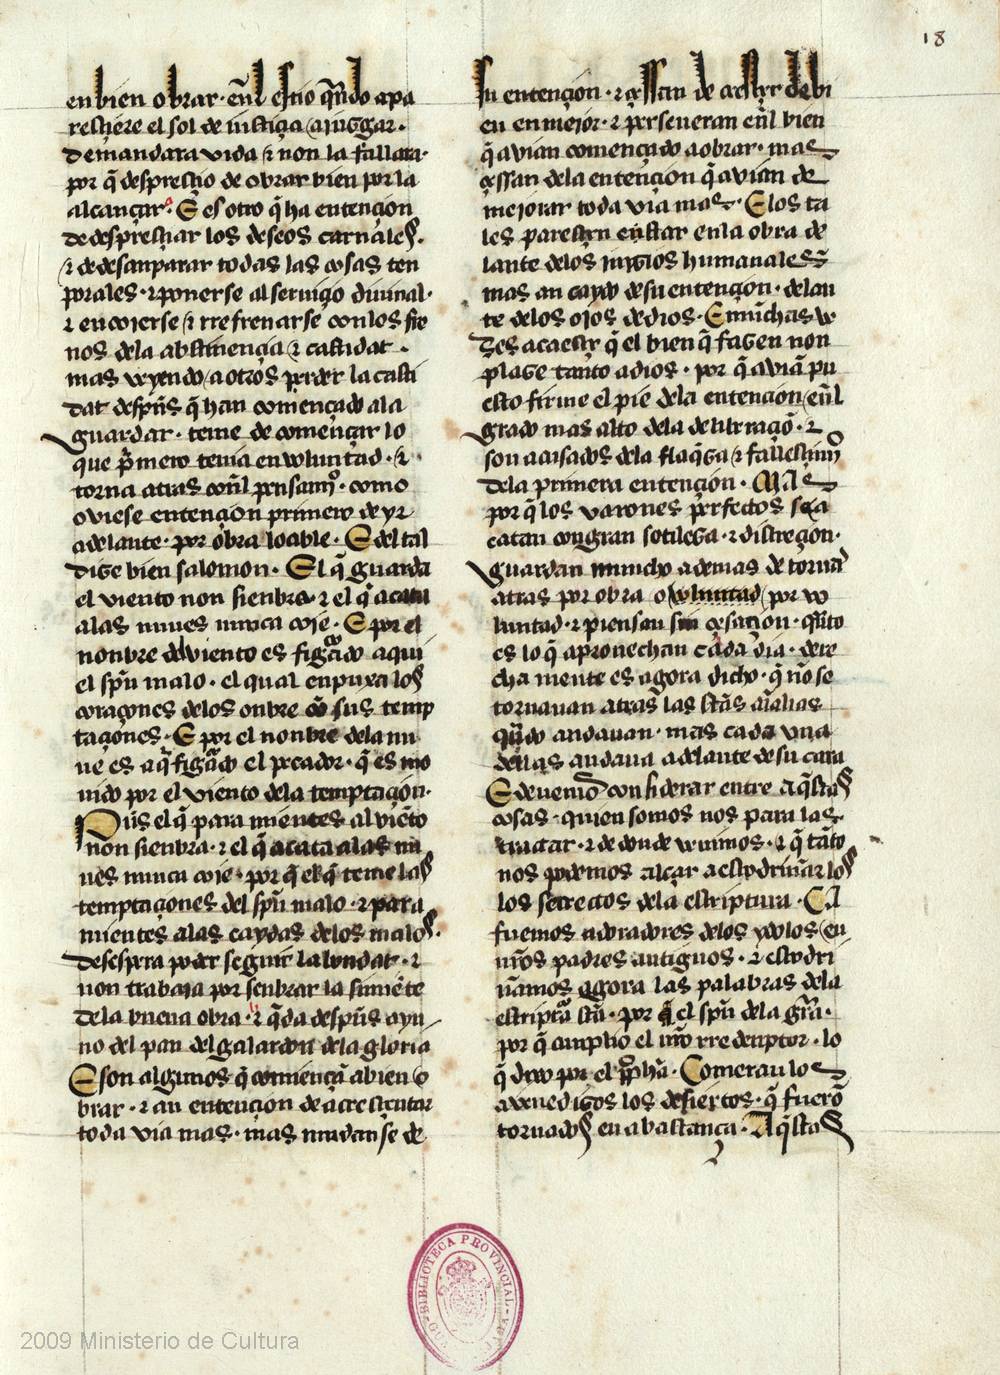 18
en bien obrar · en̄l estio qñdo apa
resçiere el sol de iustiçia a juzgar ·
demandara vida ⁊ non la fallara ·
por q̄ despreçio de obrar bien por la
alcançar · E es otro q̄ ha entençion
de despreçiar los deseos carnales ·
⁊ de desanparar todas las cosas ten
porales · ⁊ ponerse al seruiçio diuinal ·
⁊ encojerse ⁊ rrefrenarse con los fre
nos dela abstinençia ⁊ castidat ·
mas veyendo a otros perder la casti
dat despũs q̄ han començado ala
guardar · teme de començar lo
que p̄mero tenia en voluntad · ⁊
torna atras con̄l pensam̄ · como
oviese entençion primero de yr
adelante · por obra loable · E del tal
dize bien salomon · El q̄ guarda
el viento non sienbra · ⁊ el q̄ acata
alas nuues nunca coje · E por el
nonbre del viento es figᵃdo aqui
el spũ malo · el qual enpuxa los
coraçones delos onbre cō sus temp
taçiones · E por el nonbre dela nu
ue es aq̄ figᵃdo el pecador · q̄ es mo
uido por el viento dela temptaçion ·
Pũs el q̄ para mientes al viēto
non sienbra · ⁊ el q̄ acata alas nu
ues nunca coje · por q̄ el q̄ teme las
temptaçiones del spũ malo · ⁊ para
mientes alas caydas delos malos ·
desespera poder seguir la bondat · ⁊
non trabaja por senbrar la simiēte
dela buena obra · ⁊ q̄da despũs ayu
no del pan del galardon dela gloria
E son algunos q̄ comiençā a bien o
brar · ⁊ an entençion de acresçentar
toda via mas · mas mudanse de
su entençion · ⁊ çessan de creçer de bi
en en mejor · ⁊ perseueran en̄l bien
q̄ avian comencado a obrar · mas
çessan dela entençion q̄ avian de
mejorar toda via mas · E los ta
les paresçen estar en la obra de
lante delos juyzios humanales
mas an caydo de su entençion · delan
te delos ojos de dios · E muchas ve
zes acaesçe q̄ el bien q̄ fazen non
plaze tanto a dios · por q̄ aviā pu
esto firme el pie dela entençion en̄l
grado mas alto dela deliberaçiō · ⁊
son acusados dela flaq̄za ⁊ fallesçimº
dela primera entençion · Mas
por q̄ los varones perfectos se a
catan con gran sotileza · ⁊ discreçion ·
guardan muncho ademas de tornar
atras por obra o voluntad por vo
luntad · ⁊ piensan sin çesaçion · quāto
es lo q̄ aprouechan cada dia · dere
cha mente es agora dicho · q̄ nō se
tornauan atras las stãs aĩalias
qñdo andauan · mas cada vna
dellas andaua adelante de su cara
E deuemos considerar entre aq̄stas
cosas · quien somos nos para las
tractar · ⁊ de donde venimos · ⁊ q̄ tāto
nos podemos alçar a escodriñar los
los secretos dela escriptura · Ca
fuemos adoradores delos ydolos en
nr̄os padres antiguos · ⁊ escodri
ñamos agora las palabras dela
escriptᵃ stã · por q̄ el spũ dela grã ·
por q̄ cunplio el nr̄o rredenptor · lo
q̄ dixo por el ꝓphã · Comeran los
avenedizos los desiertos · q̄ fuerō
tornados en abastança · Aq̄stas
BIBLIOTECA PROVINCIAL
2009 Ministerio de Cultura